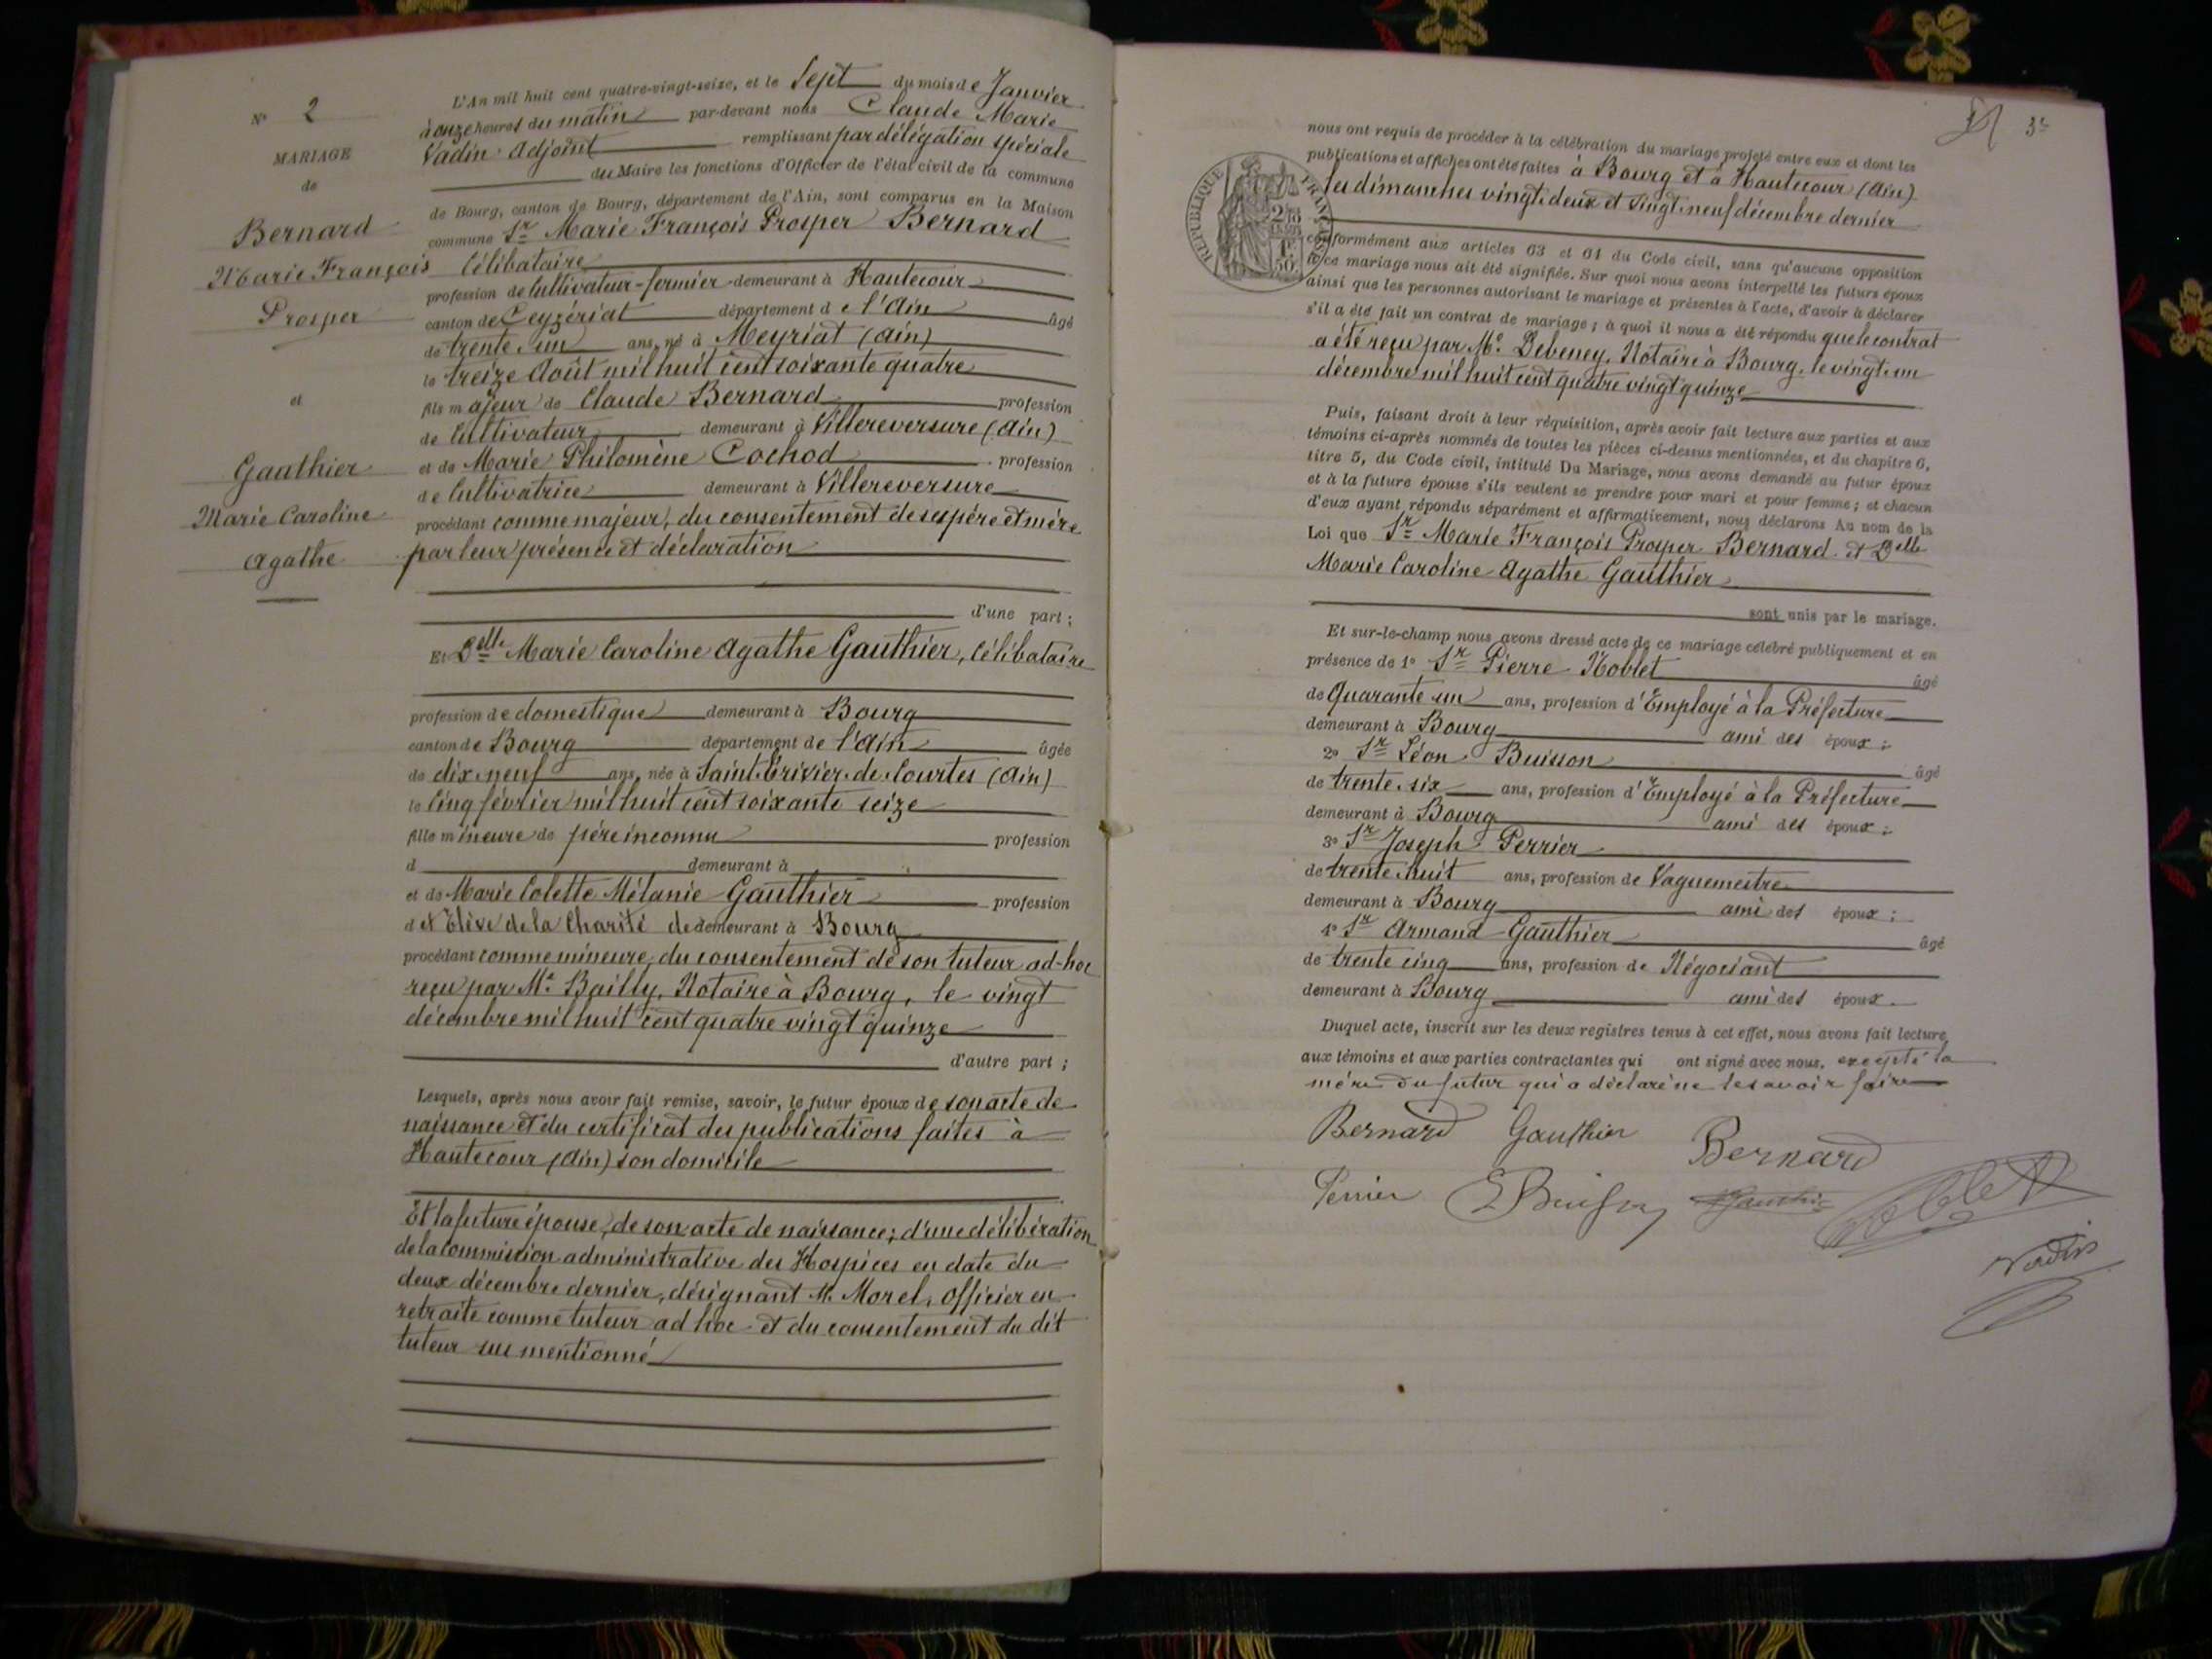 N° 2
MARIAGE
de
Bernard
Marie François
Prosper
et
Gauthier
Marie Caroline
Agathe
L'An mil huit cent quatre-vingt-seize, et le Sept du mois de Janvier
à onze heures du matin par-devant nous Claude Marie
Vadin Adjoint remplissant par délégation spéciale
du Maire les fonctions d'Officier de l'état civil de la commune
de Bourg, canton de Bourg, département de l'Ain, sont comparus en la Maison
commune Sr Marie François Prosper Bernard
Célibataire
profession de Cultivateur-fermier demeurant à Hautecour
canton de Ceyzériat département de l'Ain âgé
de trente un ans, né à Meyriat (Ain)
le treize Août mil huit cent soixante quatre
fils majeur de Claude Bernard profession
de Cultivateur demeurant à Villereversure (Ain)
et de Marie Philomène Cochod profession
de Cultivatrice demeurant à Villereversure
procédant comme majeur, du consentement de ses père et mère
par leur présence et déclaration
d'une part ;
Et Delle Marie Caroline Agathe Gauthier, Célibataire
profession de domestique demeurant à Bourg
canton de Bourg département de l'Ain âgée
de dix neuf ans, née à Saint Trivier de Courtes (Ain)
le Cinq février mil huit cent soixante seize
fille mineure de père inconnu profession
d demeurant à
et de Marie Colette Mélanie Gauthier profession
d et Elève de la Charité de demeurant à Bourg
procédant comme mineure, du consentement de son tuteur ad-hoc
reçu par Me Bailly, Notaire à Bourg, le vingt
décembre mil huit cent quatre vingt quinze
d'autre part ;
Lesquels, après nous avoir fait remise, savoir, le futur époux de son acte de
naissance et du certificat des publications faites à
Hautecour (Ain) son domicile
Et la future épouse, de son acte de naissance ; d'une délibération
de la commission administrative des Hospices en date du
deux décembre dernier, désignant M. Morel, Officier en
retraite comme tuteur ad hoc et du consentement du dit
tuteur sus mentionné
3
REPUBLIQUE FRANÇAISE
nous ont requis de procéder à la célébration du mariage projeté entre eux et dont les
publications et affiches ont été faites à Bourg et à Hautecour (Ain)
les dimanches vingt deux et vingt neuf décembre dernier
conformément aux articles 63 et 64 du Code civil, sans qu'aucune opposition
à ce mariage nous ait été signifiée. Sur quoi nous avons interpellé les futurs époux
ainsi que les personnes autorisant le mariage et présentes à l'acte, d'avoir à déclarer
s'il a été fait un contrat de mariage ; à quoi il nous a été répondu que le contrat
a été reçu par Me Debeney, Notaire à Bourg, le vingt un
décembre mil huit cent quatre vingt quinze
Puis, faisant droit à leur réquisition, après avoir fait lecture aux parties et aux
témoins ci-après nommés de toutes les pièces ci-dessus mentionnées, et du chapitre 6,
titre 5, du Code civil, intitulé Du Mariage, nous avons demandé au futur époux
et à la future épouse s'ils veulent se prendre pour mari et pour femme ; et chacun
d'eux ayant répondu séparément et affirmativement, nous déclarons Au nom de la
Loi que Sr Marie François Prosper Bernard et Delle
Marie Caroline Agathe Gauthier
sont unis par le mariage.
Et sur-le-champ nous avons dressé acte de ce mariage célébré publiquement et en
présence de 1° Sr Pierre Noblet âgé
de Quarante un ans, profession d'Employé à la Préfecture
demeurant à Bourg ami des époux ;
2° Sr Léon Buisson âgé
de trente six ans, profession d'Employé à la Préfecture
demeurant à Bourg ami des époux ;
3° Sr Joseph Perrier
de trente huit ans, profession de Vaguemestre
demeurant à Bourg ami des époux ;
4° Sr Armand Gauthier âgé
de trente cinq ans, profession de Négociant
demeurant à Bourg ami des époux.
Duquel acte, inscrit sur les deux registres tenus à cet effet, nous avons fait lecture
aux témoins et aux parties contractantes qui ont signé avec nous, excepté la
mère du futur qui a déclaré ne le savoir faire
Bernard Gauthier Bernard
Perrier LBuisson Gauthier Noblet
Vadin